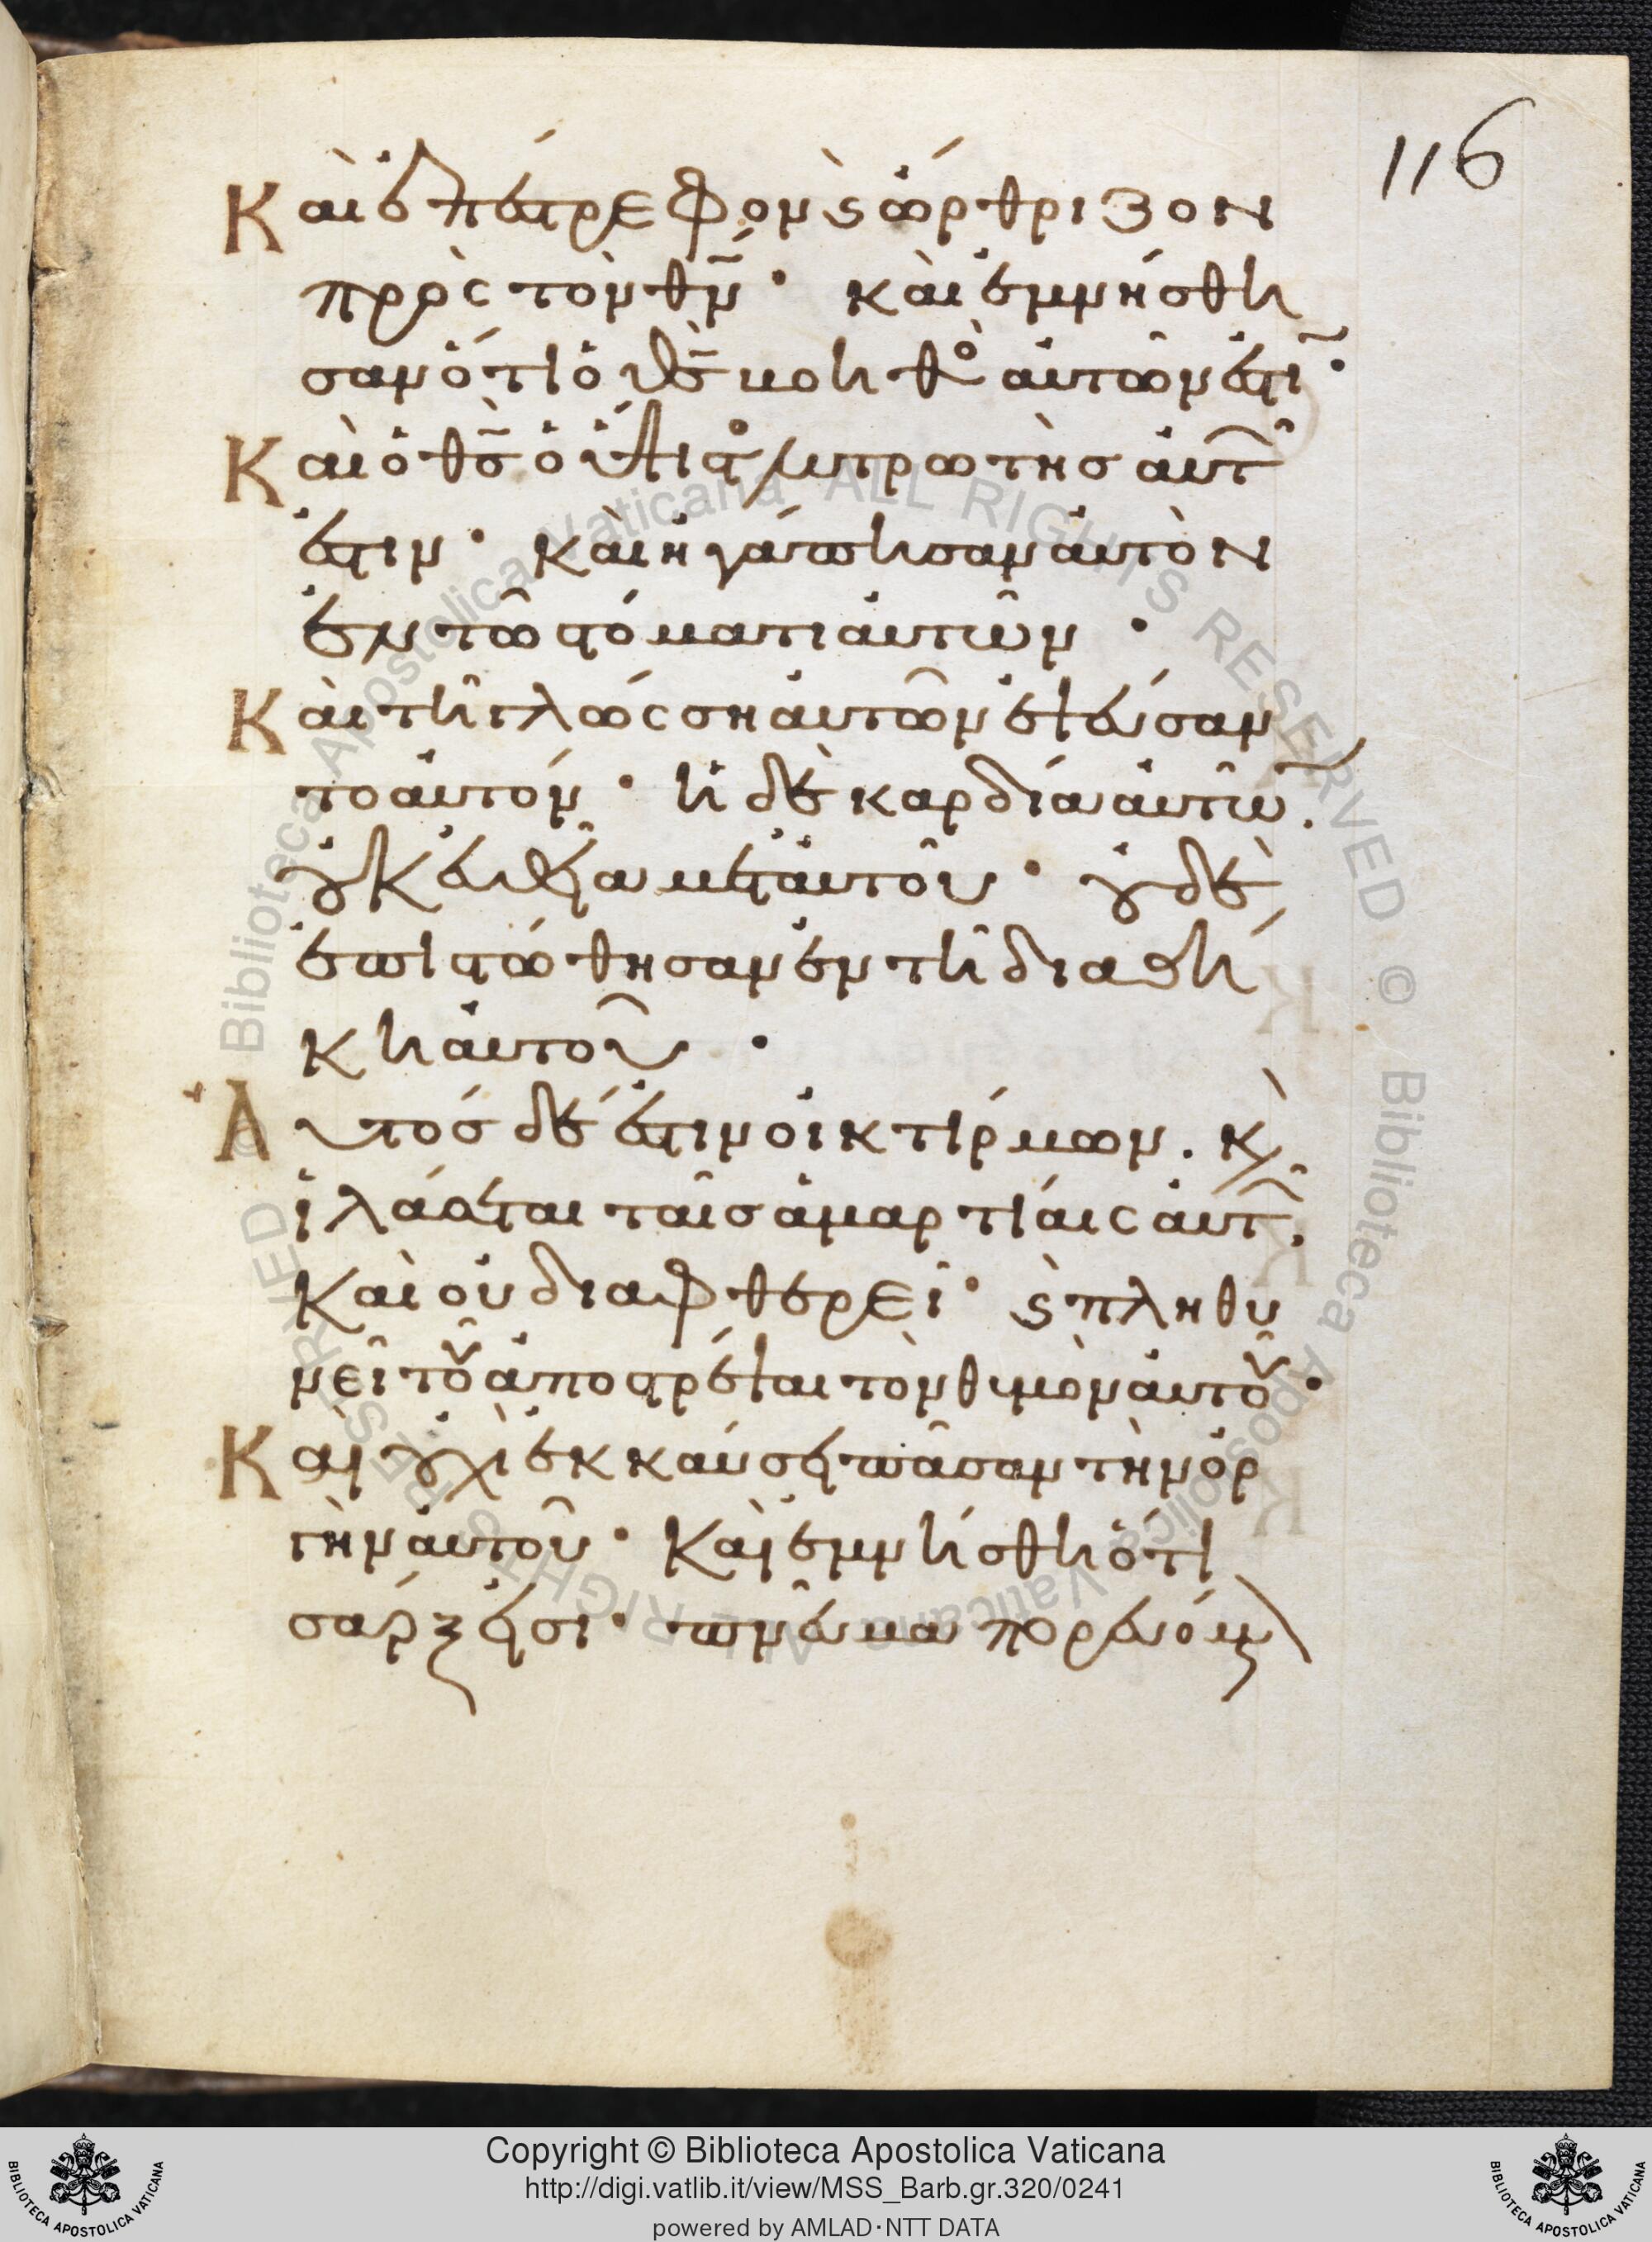 116
Καὶ ἐπέστρεφον ϗ ὤρθριζον
πρὸς τὸν θν̄· καὶ ἐμνήσθη
σαν ὅτι ὁ θς̄ βοηθὸ αὐτῶν ἐστι·
Καὶ ὁ θς̄ ὁ ὕψιστο λυτρωτὴσ αὐτ
ἐστιν· Καὶ ἠγάπησαν αὐτὸν
ἐν τῶ στόματι αὐτῶν·
Καὶ τῆ γλώσση αὐτῶν ἐψεύσαν
το αὐτόν· ἡ δὲ καρδία αὐτῶ.
οὐκ εὐθεῖα μετ αὐτοῦ· οὐδὲ
ἐπιστώθησαν ἐν τῆ διαθή
κη αὐτοῦ·
Αὐτόσ δέ ἐστιν οἰκτίρμων. ϗ
ἱλάσεται ταῖσ ἁμαρτίαις αὐτ.
Καὶ οὐ διαφθερεῖ· ϗ πληθυ
νεῖ τοῦ ἀποστρέψαι τὸν θυμὸν αὐτοῦ·
Καὶ οὐχὶ ἐκκαύσει πᾶσαν τὴν ὀρ
γὴν αὐτοῦ· Καὶ ἐμνήσθη ὅτι
σάρξ εἰσι· πνεῦμα πορευόμε
Copyright © Biblioteca Apostolica Vaticana
http://digi.vatlib.it/view/MSS_Barb.gr.320/0241
powered by AMLAD·NTT DATA
BIBLIOTECA APOSTOLICA VATICANA
BIBLIOTECA APOSTOLICA VATICANA
Biblioteca Apostolica Vaticana ALL RIGHTS RESERVED ©
Biblioteca Apostolica Vaticana ALL RIGHTS RESERVED ©